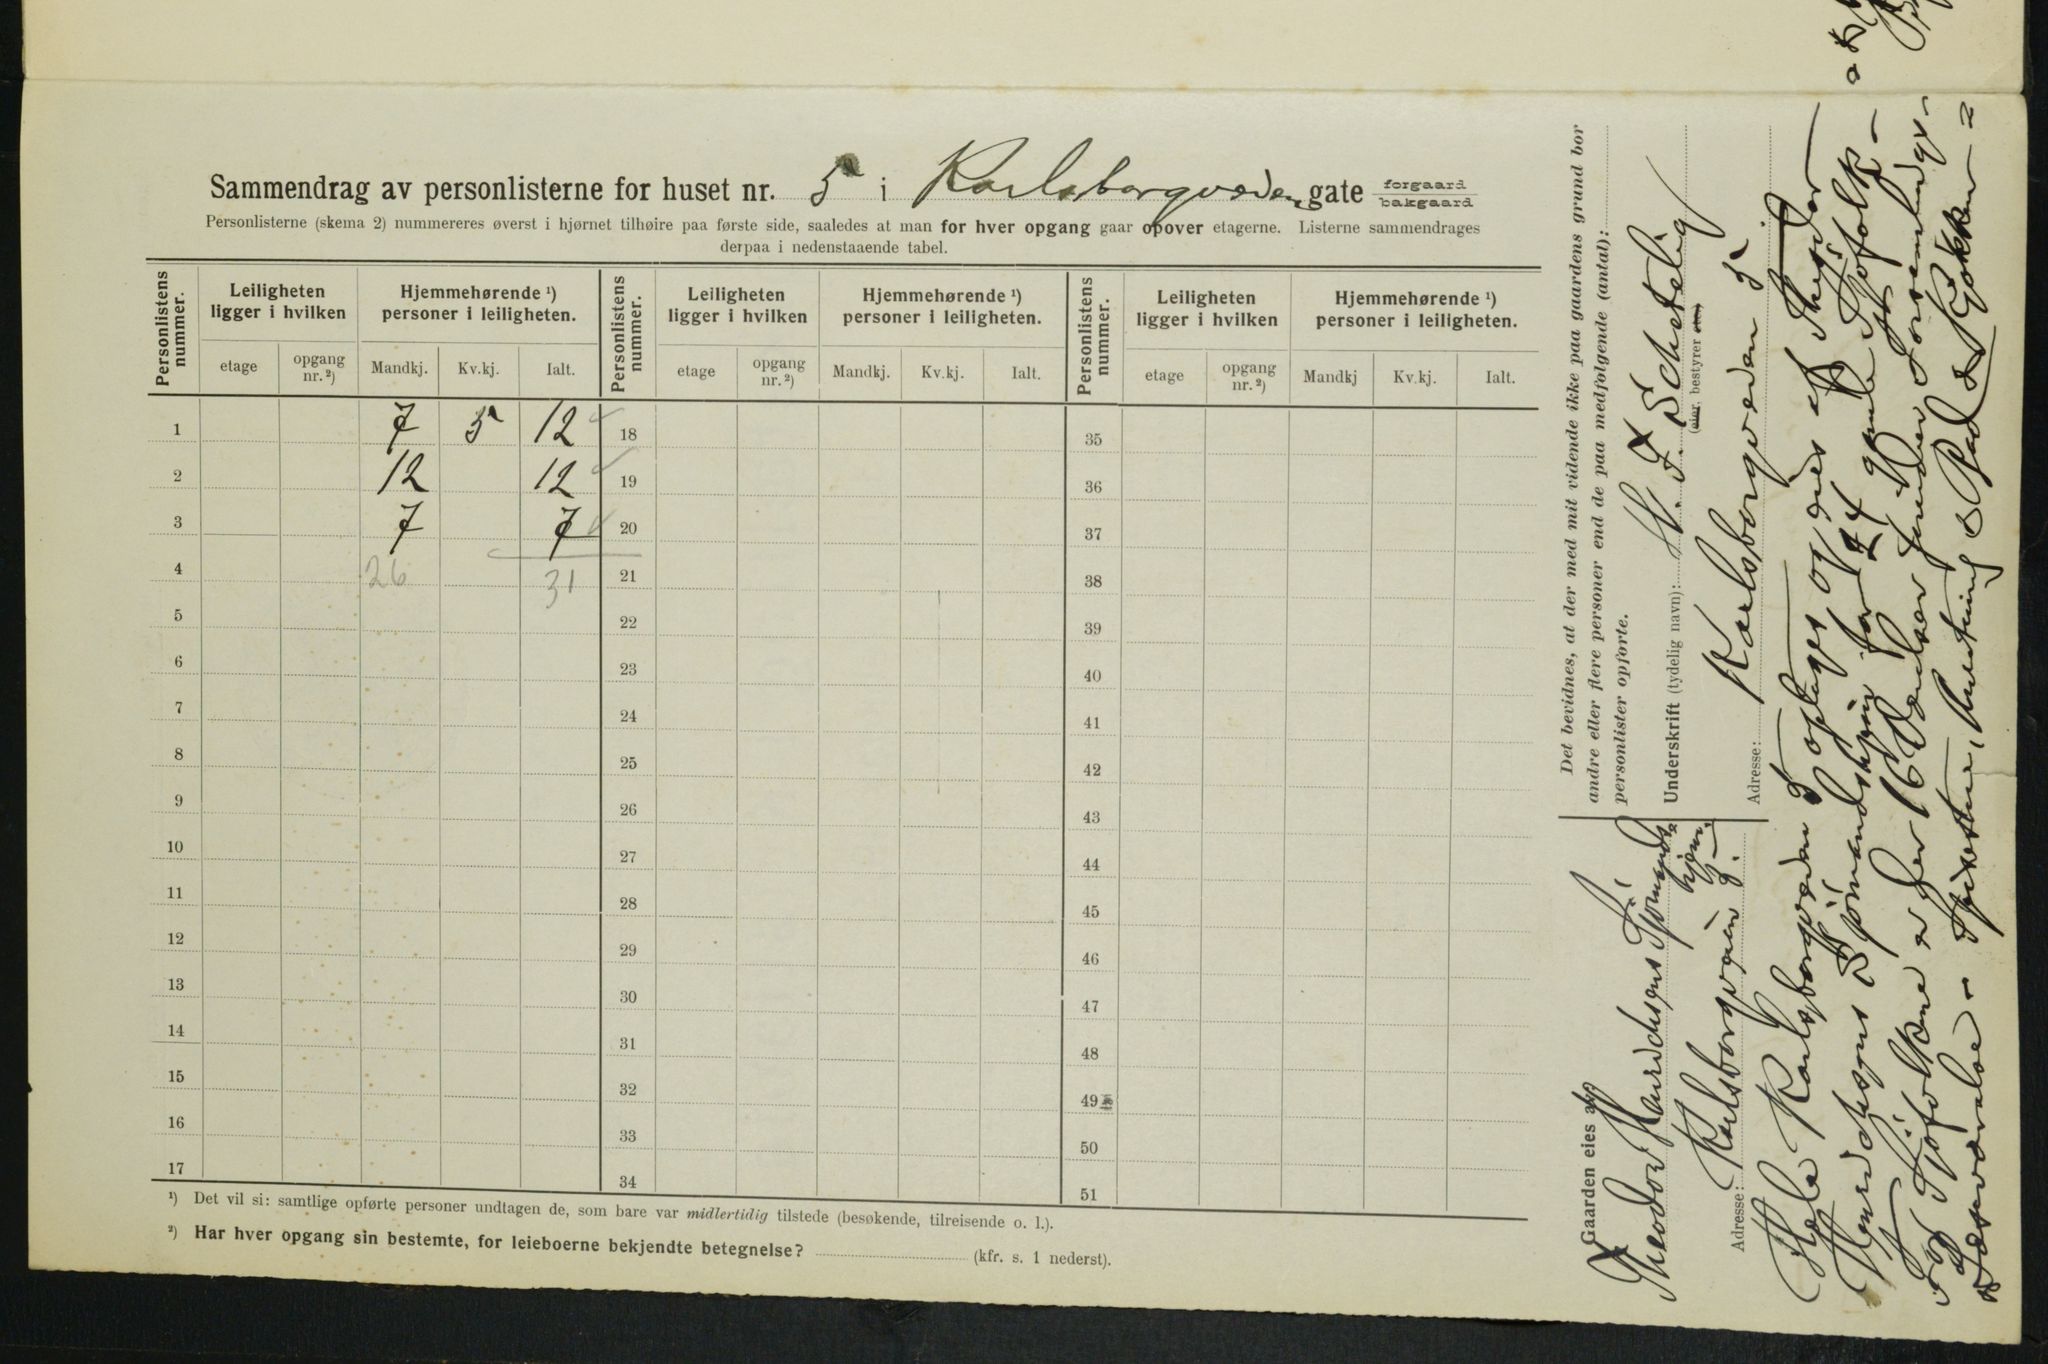 Sammendrag av personlisterne for huset nr. 5 i Karlsborgveien gate forgaard bakgaard
Personlisterne (skema 2) nummereres øverst i hjørnet tilhøire paa første side, saaledes at man for hver opgang gaar opover etagerne. Listerne sammendrages
derpaa i nedenstaaende tabel.
Personlistens nummer. Leiligheten ligger i hvilken Hjemmehørende ¹) personer i leiligheten. Personlistens nummer. Leiligheten ligger i hvilken Hjemmehørende ¹) personer i leiligheten. Personlistens nummer. Leiligheten ligger i hvilken Hjemmehørende ¹) personer i leiligheten.
etage opgang nr. ²) Mandkj. Kv.kj. Ialt. etage opgang nr. ²) Mandkj. Kv.kj. Ialt. etage opgang nr. ²) Mandkj Kv.kj. Ialt.
1 7 5 12 18 35
2 12 12 19 36
3 7 7 20 37
4 26 31 21 38
5 22 39
6 23 40
7 24 41
8 25 42
9 26 43
10 27 44
11 28 45
12 29 46
13 30 47
14 31 48
15 32 49
16 33 50
17 34 51
¹) Det vil si: samtlige opførte personer undtagen de, som bare var midlertidig tilstede (besøkende, tilreisende o. l.).
²) Har hver opgang sin bestemte, for leieboerne bekjendte betegnelse? (kfr. s. 1 nederst).
Det bevidnes, at der med mit vidende ikke paa gaardens grund bor
andre eller flere personer end de paa medfølgende (antal):
personlister opførte.
Underskrift (tydelig navn): H. F. Schetelig
(eier, bestyrer etc.)
Adresse: Karlsborgveien 5
Gaarden eies av:
Theodor Henrichsens Sjømands
hjem
Adresse: Karlsborgveien 5.
Hele Karlsborgveien 5 optages og eies af Theodor
Henrichsens Sjømandshjem for 24 gamle Sjøfolk –
For Sjøfolkene er her 16 Værelser foruden
Læseværelse – Spisestue, Anretning & Bad & Kjøkken =